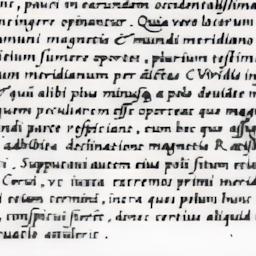 nc, pauci in earundem occidentalissima
ingere opinantur. Quia vero locorum
amuni magnetis & mundi meridiano
icium sumere oportet, plurium testim
um meridianum per dictas C Viridis in
& quū alibi plus minusq̄ a polo deuidet m
quem peculiarem esse oporteat quo magn
ndi parte respiciant, eum hoc quo assig
adhibita declinatione magnetis R
i. Supputaui autem eius poli situm etia
Corui, ut iuxta extremos primi merid
i eosdem terminos, intra quos polum hunc
, conspicui fierent, donec certius aliquid
ruatio attulerit.